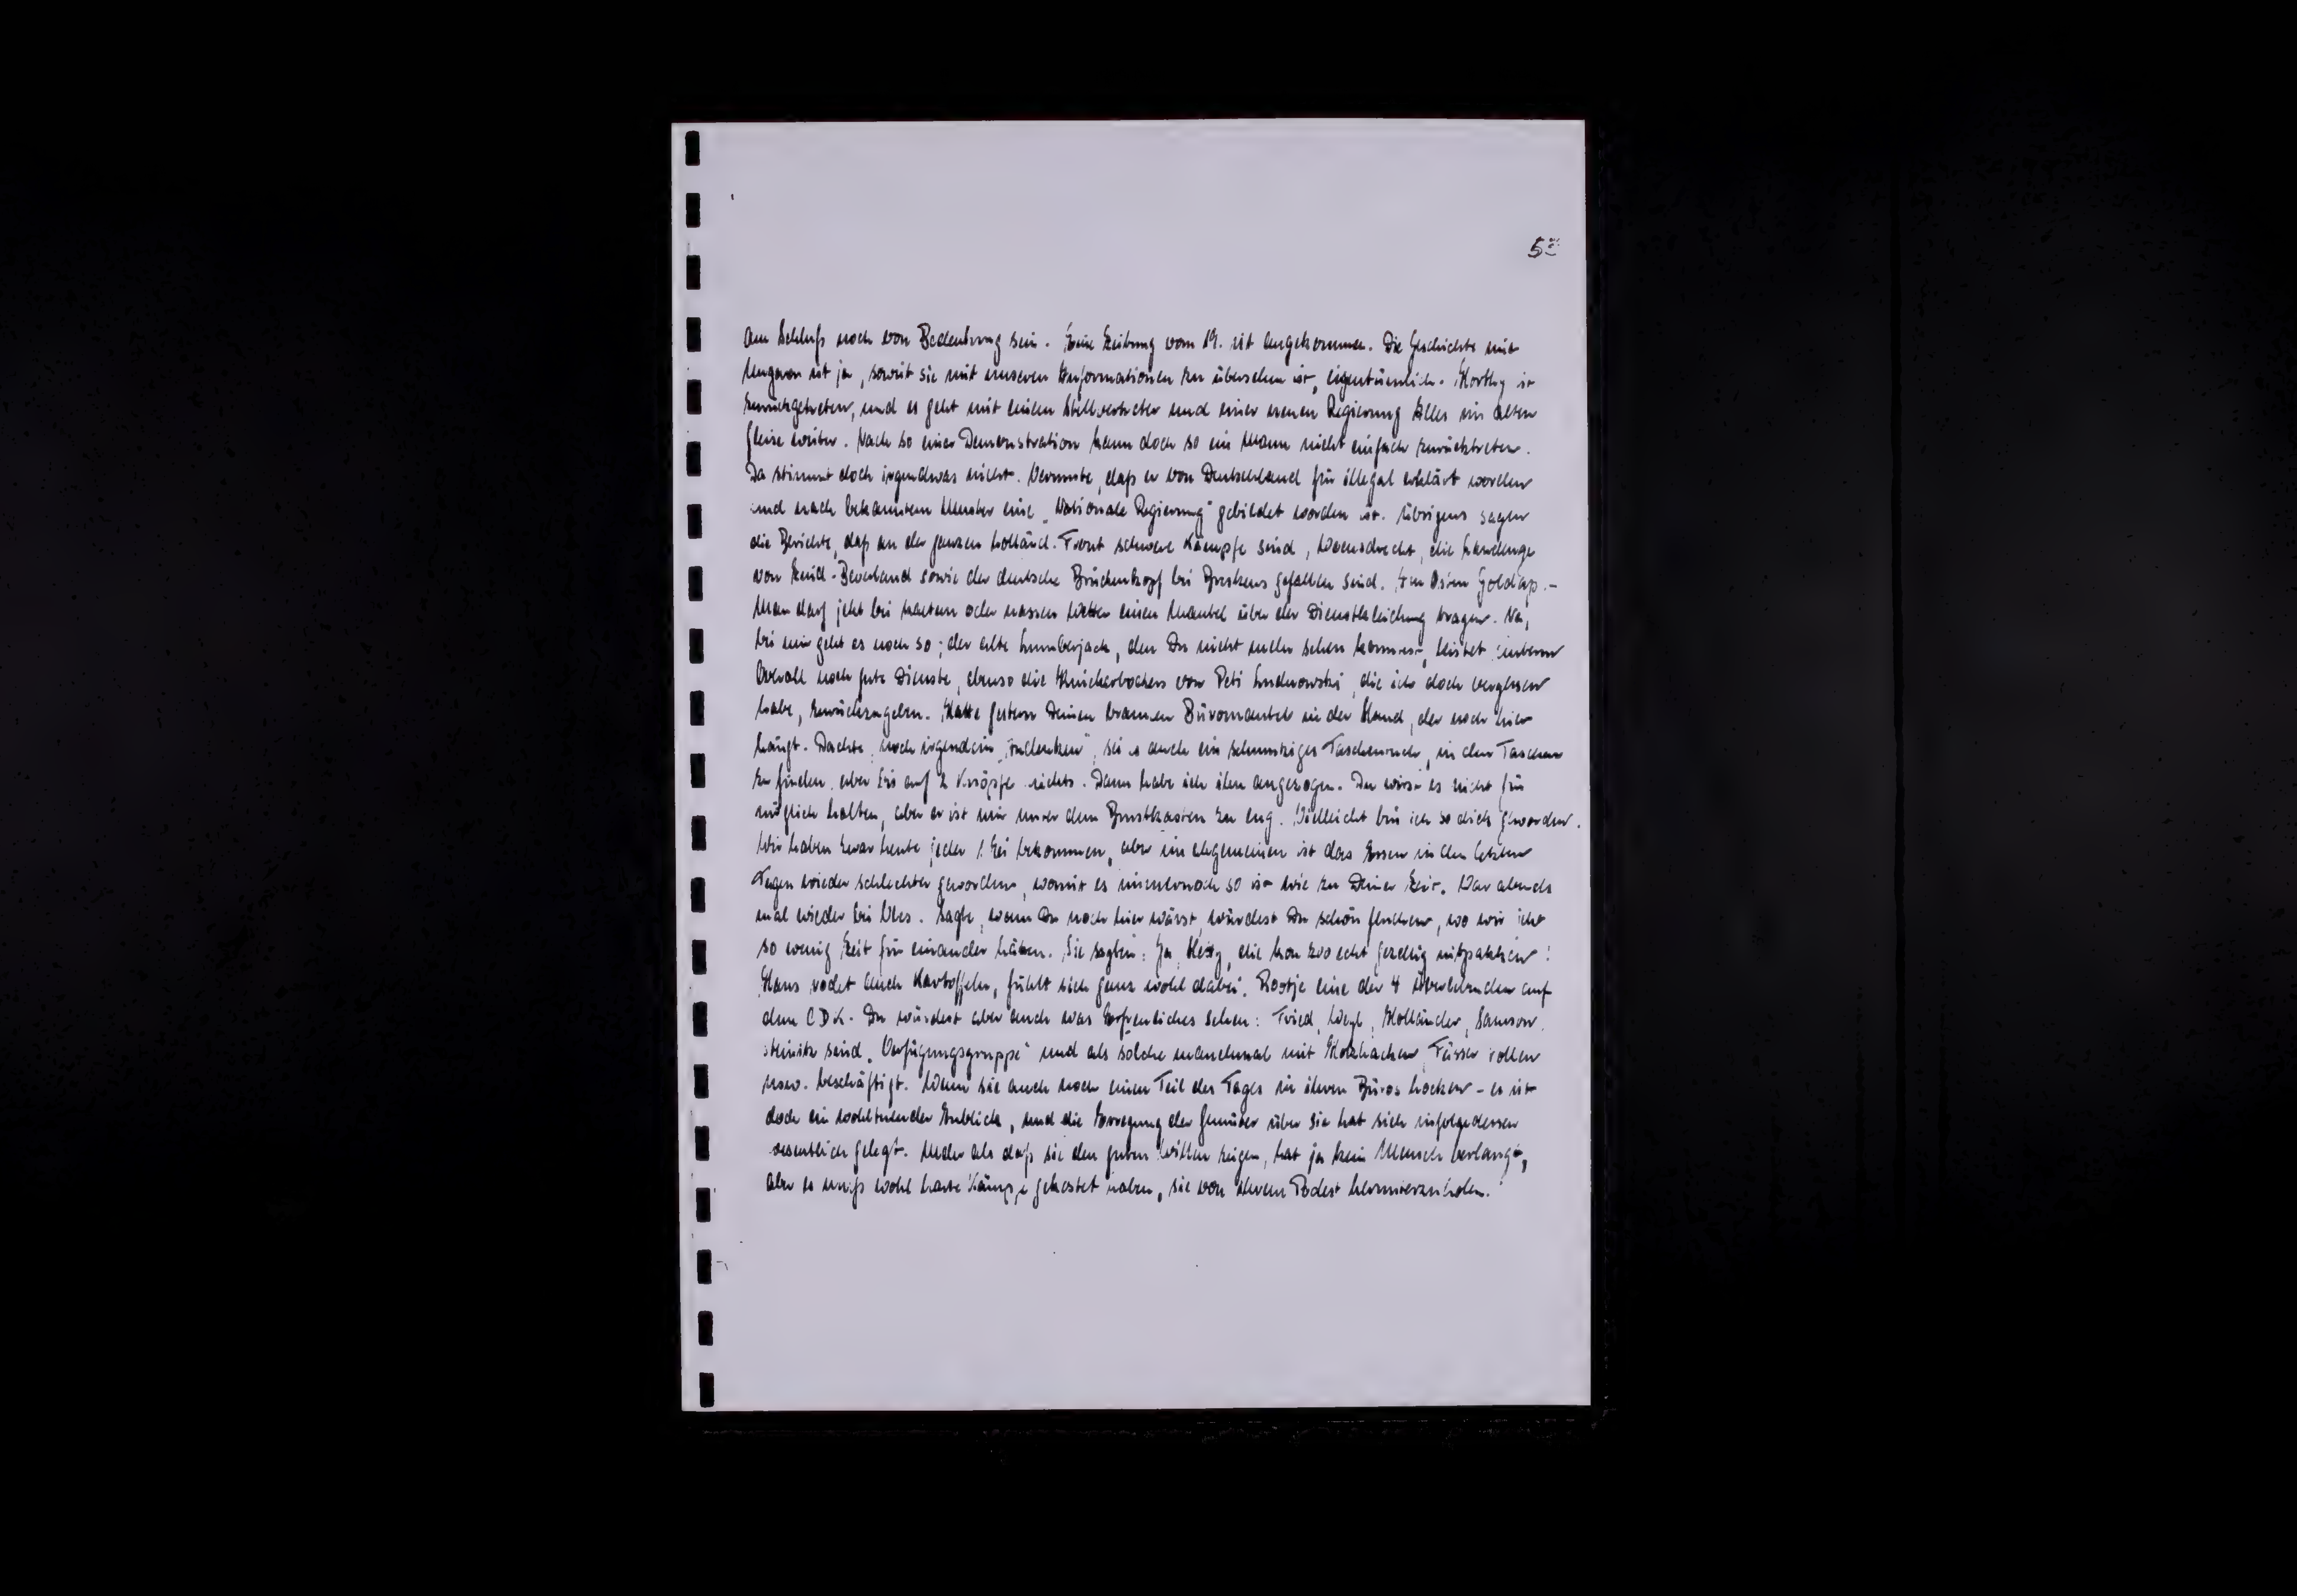 5
am Schluß noch von Bedeutung sein. Eine Zeitung vom 19. ist angekommen. Die Geschichte mit
Ungarn ist ja, soweit sie mit unseren Informationen zu übersehen ist, eigentümlich. Horthy ist
zurückgetreten, und es geht mit einem Stellvertreter und einer neuen Regierung Alles im alten
Gleise weiter. Nach so einer Demonstration kann doch so ein Mann nicht einfach zurücktreten.
Da stimmt doch irgendwas nicht. Vermute, daß er von Deutschland für illegal erklärt worden
und nach bekanntem Muster eine "Nationale Regierung" gebildet worden ist. Übrigens sagen
die Berichte, daß an der ganzen holländ. Front schwere Kämpfe sind, Woensdrecht, die Landenge
von Zuid-Beveland sowie der deutsche Brückenkopf bei Breskens gefallen sind. Im Osten Goldap. -
Man darf jetzt bei kaltem oder nassem Wetter einen Mantel über der Dienstkleidung tragen. Na,
bei mir geht es noch so; der alte Lumberjack, den Du nicht mehr sehen konntest, leistet unterm
Overall noch gute Dienste, ebenso die Knickerbockers von Peti Ludnowski, die ich doch vergessen
habe, zurückzugeben. Hatte gestern Deinen braunen Büromantel in der Hand, der noch hier
hängt. Dachte, noch irgendein "Andenken", sei es auch ein schmutziges Taschentuch, in den Taschen
zu finden, aber bis auf 2 Knöpfe nichts. Dann habe ich ihn angezogen. Du wirst es nicht für
möglich halten, aber er ist mir unter dem Brustkasten zu eng. Vielleicht bin ich so dick geworden.
Wir haben zwar heute jeder 1 Ei bekommen, aber im allgemeinen ist das Essen in den letzten
Tagen wieder schlechter geworden, womit es immernoch so ist wie zu Deiner Zeit. War abends
mal wieder bei Ules. Sagte, wenn Du noch hier wärst, würdest Du schön fluchen, wo wir jetzt
so wenig Zeit für einander hätten. Sie sagten: Ja, Hetty, die kon zoo echt gezellig mitpakken!
Hans rodet auch Kartoffeln, fühlt sich ganz wohl dabei. Rootje eine der 4 Überlebenden auf
dem CDK. Du würdest aber auch was Erfreuliches sehen: Fried, Weyl, Holländer, Samson,
Steinitz sind "Verfügungsgruppe" und als solche manchmal mit Holzhacken, Fässer rollen
usw. beschäftigt. Wenn sie auch noch einen Teil des Tages in ihren Büros hocken - es ist
doch ein wohltuender Anblick, und die Erregung der Gemüter über sie hat sich infolgedessen
wesentlich gelegt. Mehr als daß sie den guten Willen zeigen, hat ja kein Mensch verlangt,
aber es muß wohl harte Kämpfe gekostet haben, sie von ihrem Podest herunterzuholen.